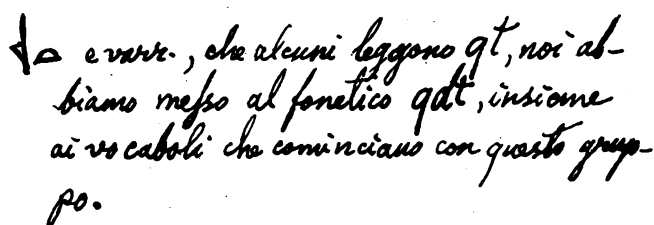 e varr., che alcuni leggono qt, noi ab-
biamo messo al fonetico qdt, insieme
ai vocaboli che cominciano con questo grup-
po.